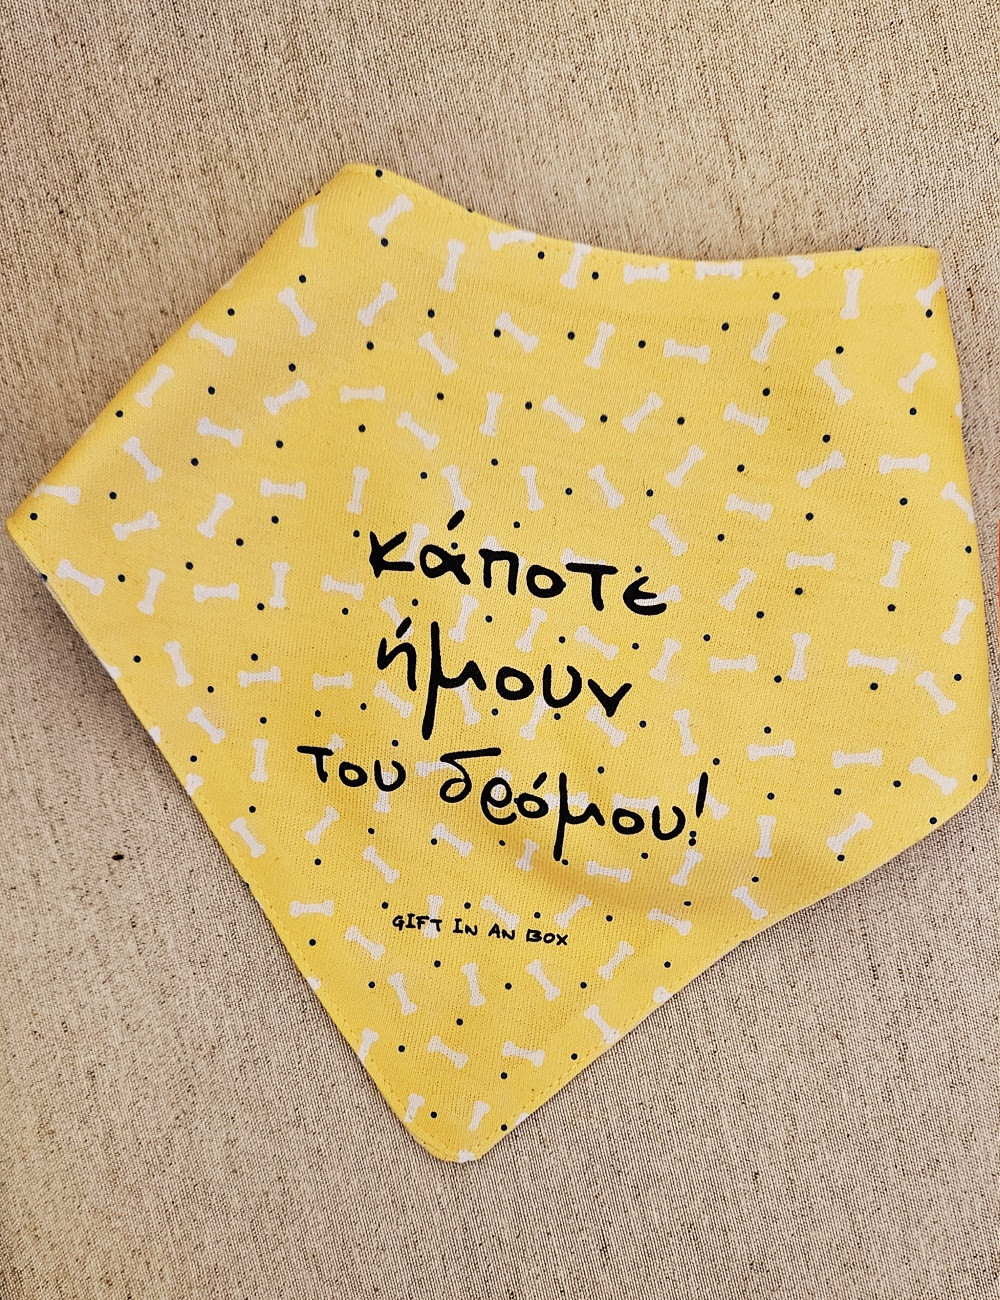 κάποτε
ήμουν
του δρόμου!
GIFT IN AN BOX